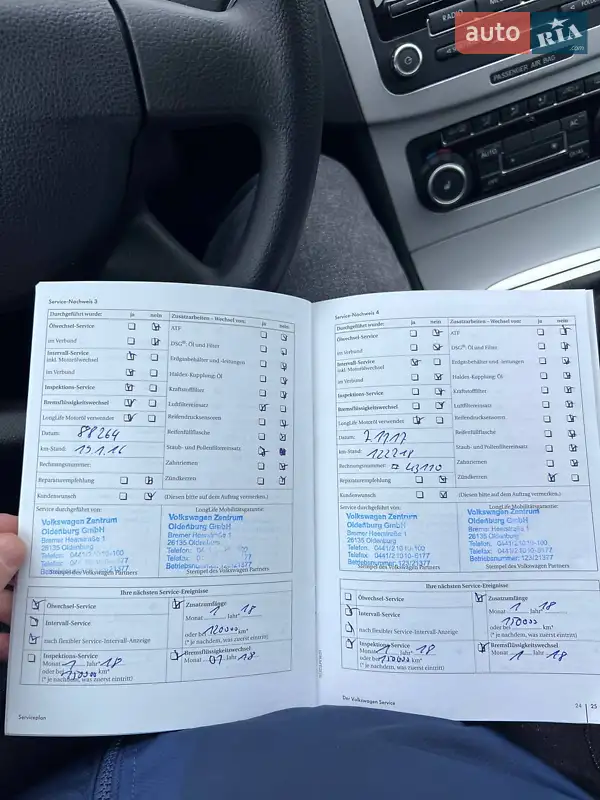 auto RIA .com
RADIO
PASSENGER AIR BAG
AUTO
AC
Service-Nachweis 3
Durchgeführt wurde: ja nein
Ölwechsel-Service
im Verbund
Intervall-Service
inkl. Motorölwechsel
im Verbund
Inspektions-Service
Bremsflüssigkeitswechsel
LongLife Motoröl verwendet
Datum: 88264
km-Stand: 19.1.16
Rechnungsnummer:
Reparaturempfehlung
Kundenwunsch
Zusatzarbeiten – Wechsel von: ja nein
ATF
DSG®-Öl und Filter
Erdgasbehälter und -leitungen
Haldex-Kupplung, Öl
Kraftstofffilter
Luftfiltereinsatz
Reifendrucksensoren
Reifenfüllflasche
Staub- und Pollenfiltereinsatz
Zahnriemen
Zündkerzen
(Diesen bitte auf dem Auftrag vermerken.)
Service durchgeführt von:
Volkswagen Zentrum
Oldenburg GmbH
Bremer Heerstraße 1
26135 Oldenburg
Stempel des Volkswagen Partners
LongLife Mobilitätsgarantie:
Volkswagen Zentrum
Oldenburg GmbH
Bremer Heerstraße 1
26135 Oldenburg
Stempel des Volkswagen Partners
Ihre nächsten Service-Ereignisse
Ölwechsel-Service
Intervall-Service
nach flexibler Service-Intervall-Anzeige
Inspektions-Service*
Monat 1 Jahr* 18
oder bei 150000 km*
(* je nachdem, was zuerst eintritt)
Zusatzumfänge
Monat 1 Jahr* 18
oder bei 120000 km*
(* je nachdem, was zuerst eintritt)
Bremsflüssigkeitswechsel
Monat 01 Jahr 18
Serviceplan
Service-Nachweis 4
Durchgeführt wurde: ja nein
Ölwechsel-Service
im Verbund
Intervall-Service
inkl. Motorölwechsel
im Verbund
Inspektions-Service
Bremsflüssigkeitswechsel
LongLife Motoröl verwendet
Datum: 21717
km-Stand: 122218
Rechnungsnummer: 43110
Reparaturempfehlung
Kundenwunsch
Zusatzarbeiten – Wechsel von: ja nein
ATF
DSG®-Öl und Filter
Erdgasbehälter und -leitungen
Haldex-Kupplung, Öl
Kraftstofffilter
Luftfiltereinsatz
Reifendrucksensoren
Reifenfüllflasche
Staub- und Pollenfiltereinsatz
Zahnriemen
Zündkerzen
(Diesen bitte auf dem Auftrag vermerken.)
Service durchgeführt von:
Volkswagen Zentrum
Oldenburg GmbH
Bremer Heerstraße 1
26135 Oldenburg
Telefon: 0441/21010-100
Telefax: 0441/21010-8177
Betriebsnummer: 123/21377
Stempel des Volkswagen Partners
LongLife Mobilitätsgarantie:
Volkswagen Zentrum
Oldenburg GmbH
Bremer Heerstraße 1
26135 Oldenburg
Telefon: 0441/21010-100
Telefax: 0441/21010-8177
Betriebsnummer: 123/21377
Stempel des Volkswagen Partners
Ihre nächsten Service-Ereignisse
Ölwechsel-Service
Intervall-Service
nach flexibler Service-Intervall-Anzeige
Inspektions-Service*
Monat 1 Jahr* 18
oder bei 150000 km*
(* je nachdem, was zuerst eintritt)
Zusatzumfänge
Monat 1 Jahr* 18
oder bei 150000 km*
(* je nachdem, was zuerst eintritt)
Bremsflüssigkeitswechsel
Monat 1 Jahr 18
Der Volkswagen Service
24 | 25